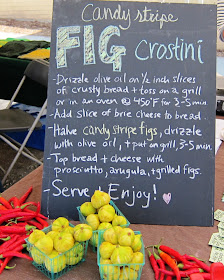 Candy stripe
FIG Crostini
- Drizzle olive oil on ½ inch slices
of crusty bread + toss on a grill
or in an oven @ 450°F for 3-5 min
- Add slice of brie cheese to bread.
- Halve candy stripe figs, drizzle
with olive oil, + put on grill, 3-5 min.
- Top bread + cheese with
prosciutto, arugula, + grilled figs.
- Serve + Enjoy!